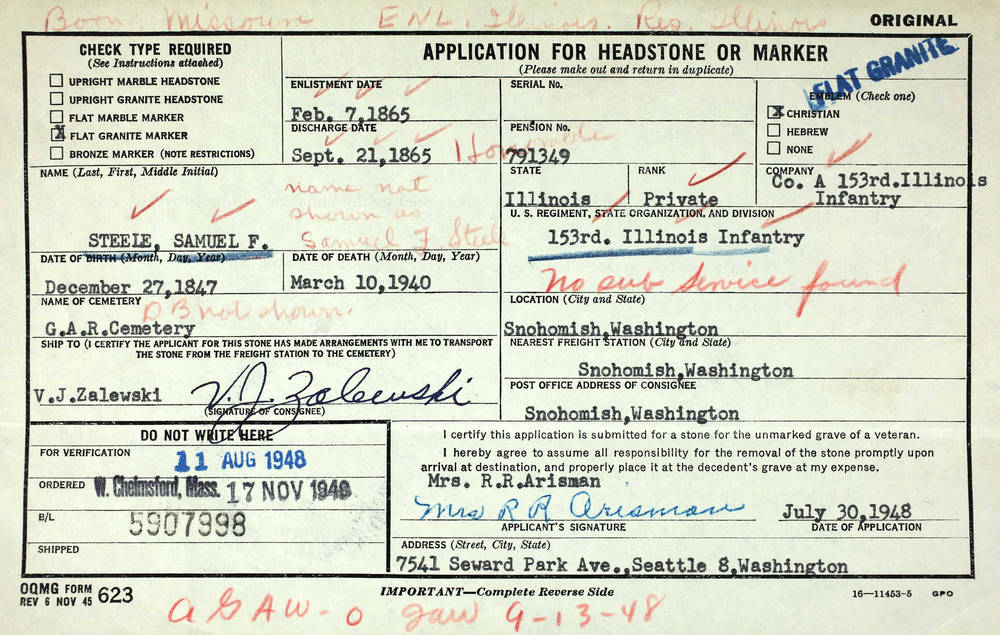 Born Missouri ENL. Illinois. Res. Illinois
ORIGINAL
CHECK TYPE REQUIRED
(See Instructions attached)
UPRIGHT MARBLE HEADSTONE
UPRIGHT GRANITE HEADSTONE
FLAT MARBLE MARKER
X FLAT GRANITE MARKER
BRONZE MARKER (NOTE RESTRICTIONS)
APPLICATION FOR HEADSTONE OR MARKER
(Please make out and return in duplicate)
FLAT GRANITE
ENLISTMENT DATE
Feb. 7,1865
DISCHARGE DATE
Sept. 21,1865 Honorable
SERIAL No.
PENSION No.
791349
EMBLEM (Check one)
X CHRISTIAN
HEBREW
NONE
NAME (Last, First, Middle Initial)
STEELE, SAMUEL F.
name not
shown as
Samuel F. Steele
STATE
Illinois
RANK
Private
COMPANY
Co. A 153rd.Illinois
Infantry
U. S. REGIMENT, STATE ORGANIZATION, AND DIVISION
153rd. Illinois Infantry
No sub service found
DATE OF BIRTH (Month, Day, Year)
December 27,1847
DATE OF DEATH (Month, Day, Year)
March 10,1940
DB not shown.
NAME OF CEMETERY
G.A.R.Cemetery
LOCATION (City and State)
Snohomish,Washington
SHIP TO (I CERTIFY THE APPLICANT FOR THIS STONE HAS MADE ARRANGEMENTS WITH ME TO TRANSPORT
THE STONE FROM THE FREIGHT STATION TO THE CEMETERY)
V.J.Zalewski V. J. Zalewski
(SIGNATURE OF CONSIGNEE)
NEAREST FREIGHT STATION (City and State)
Snohomish,Washington
POST OFFICE ADDRESS OF CONSIGNEE
Snohomish,Washington
DO NOT WRITE HERE
FOR VERIFICATION
11 AUG 1948
ORDERED W. Chelmsford, Mass. 17 NOV 1948
B/L
5907998
SHIPPED
I certify this application is submitted for a stone for the unmarked grave of a veteran.
I hereby agree to assume all responsibility for the removal of the stone promptly upon
arrival at destination, and properly place it at the decedent's grave at my expense.
Mrs. R.R.Arisman
Mrs R R Arisman
APPLICANT'S SIGNATURE
July 30,1948
DATE OF APPLICATION
ADDRESS (Street, City, State)
7541 Seward Park Ave.,Seattle 8,Washington
OQMG FORM 623
REV 6 NOV 45
IMPORTANT—Complete Reverse Side
16—11453-5 GPO
9-13-48